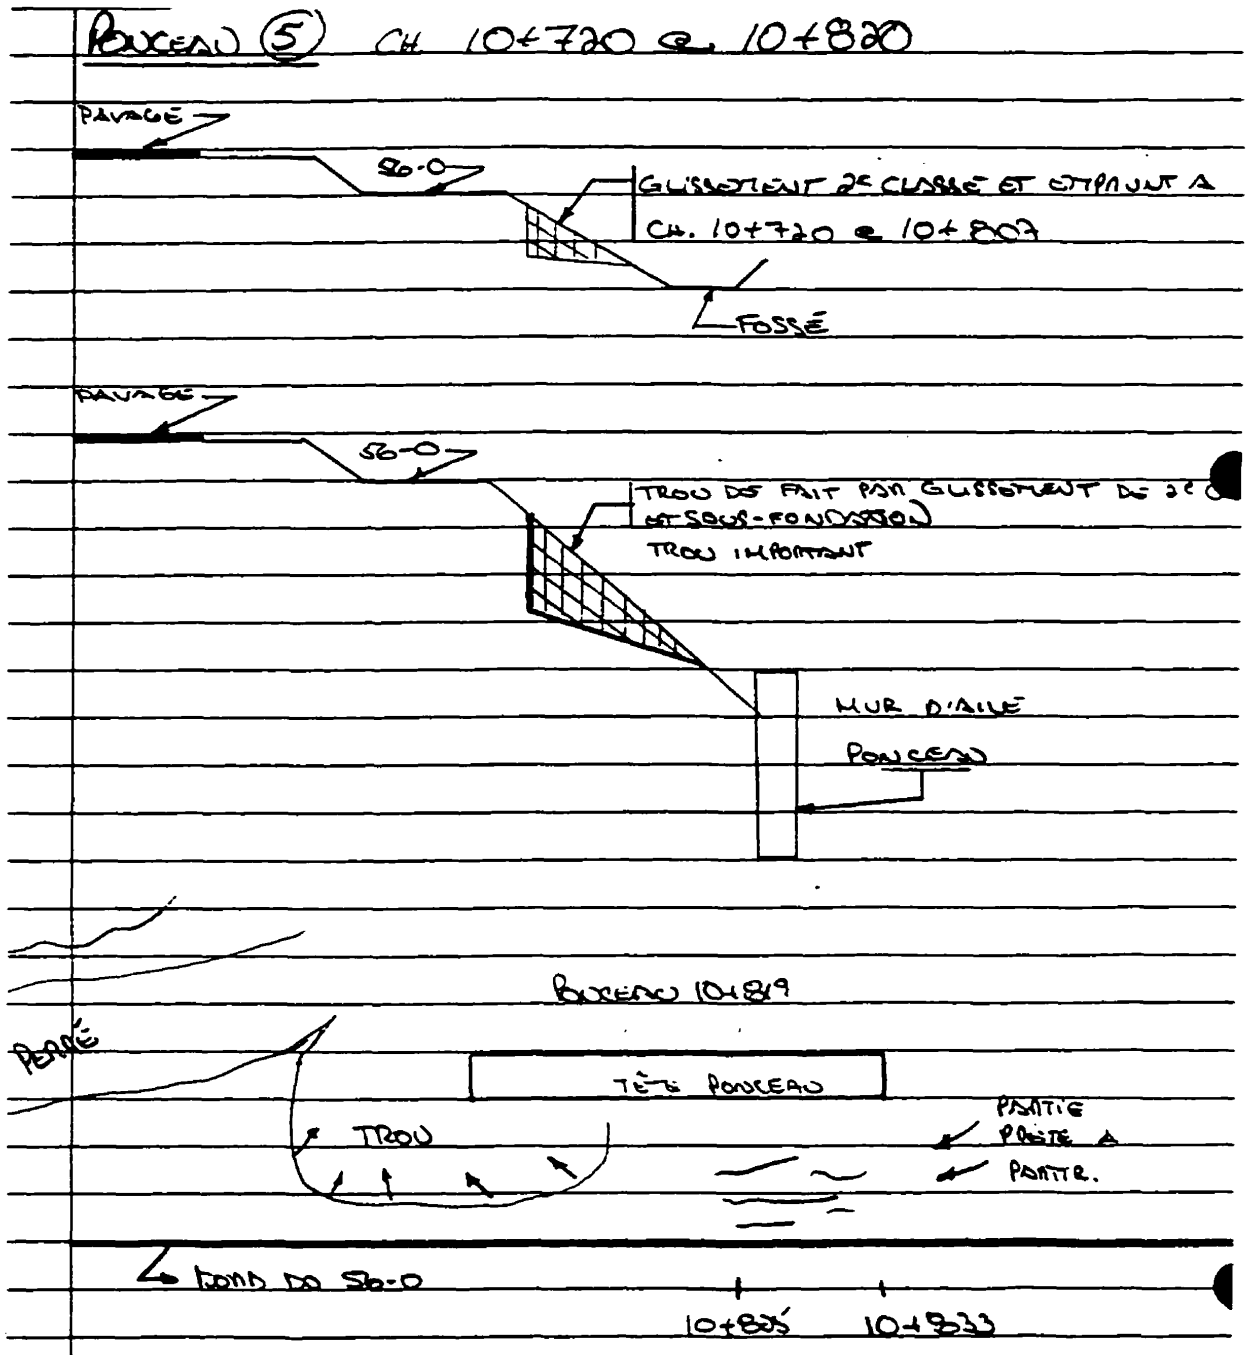 PONCEAU 5 CH 10+720 @ 10+820
PAVAGE
56-0
GLISSEMENT 2e CLASSE ET EMPRUNT A
CH. 10+720 @ 10+807
FOSSÉ
PAVAGE
56-0
TROU DE FAIT PAR GLISSEMENT DE 2e C
ET SOUS-FONDATION
TROU IMPORTANT
MUR D'AILE
PONCEAU
PONCEAU 10+819
PERRÉ
TÊTE PONCEAU
PARTIE
PRÊTE A
PARTIR.
TROU
BORD DO 56-0
10+825 10+833